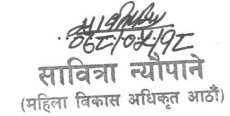 ०६८।०५।१८
सावित्रा न्यौपाने
(महिला विकास अधिकृत आठौं)